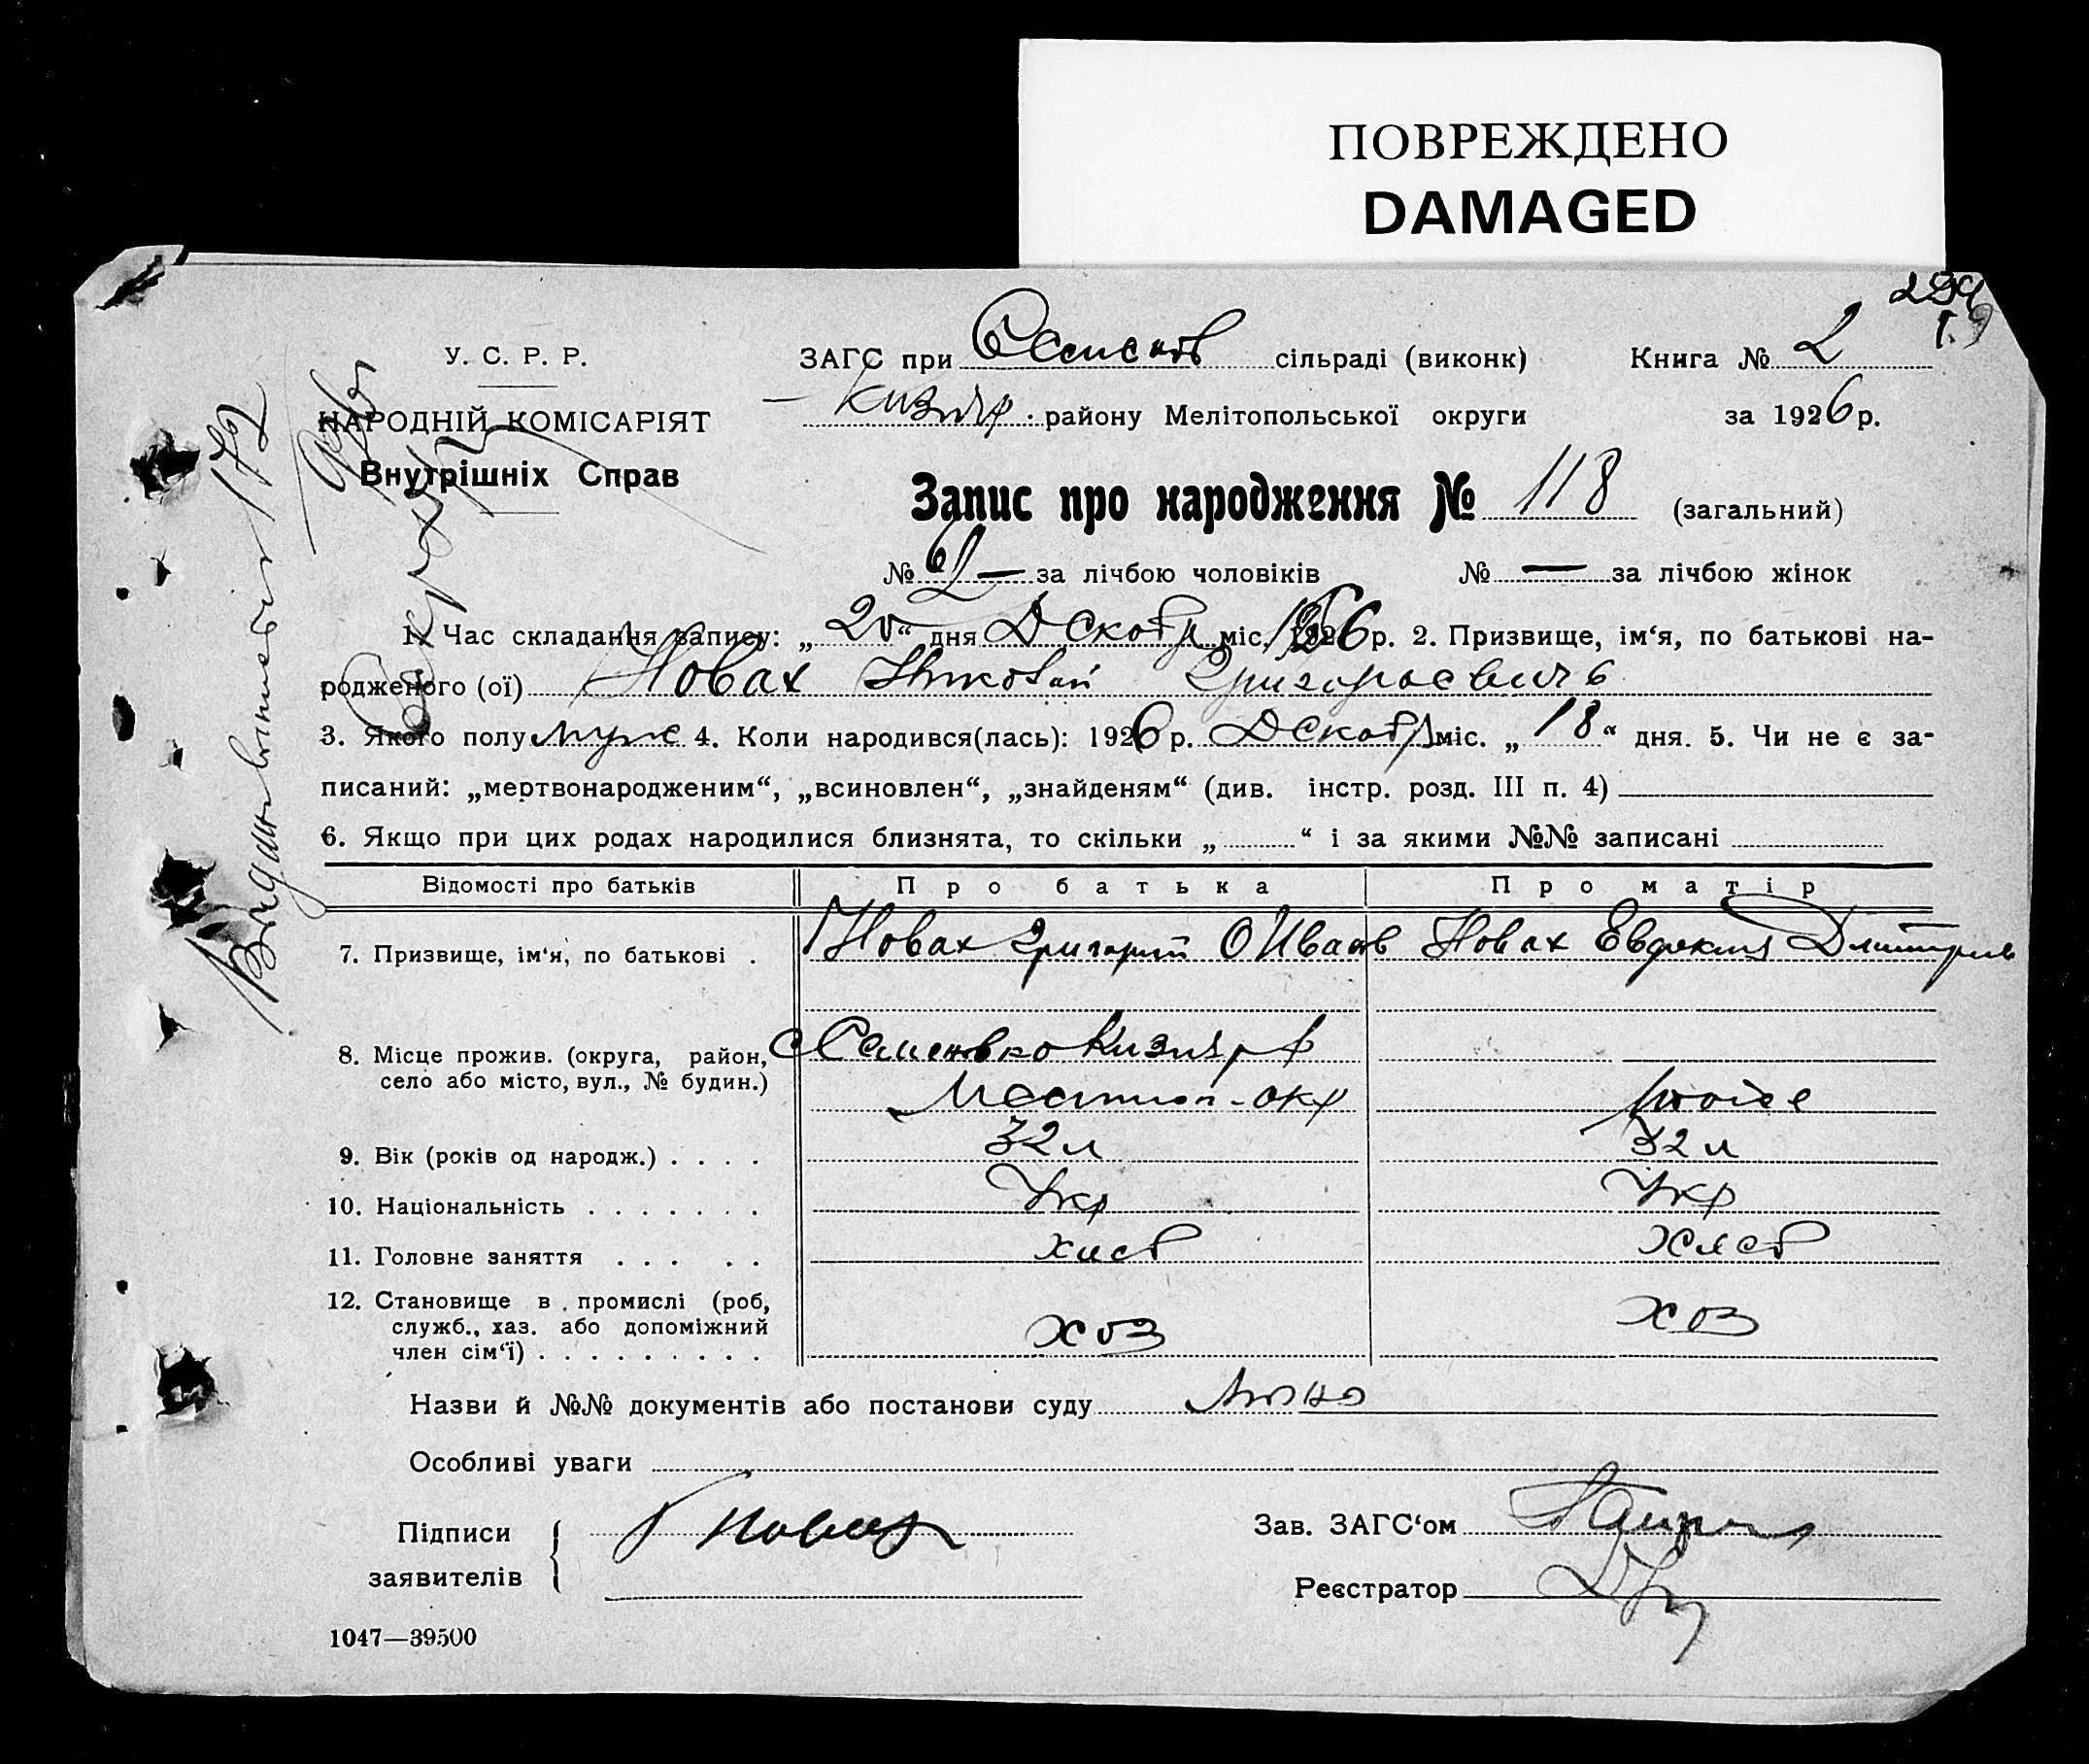 ПОВРЕЖДЕНО
DAMAGED
У. С. Р. Р.
НАРОДНІЙ КОМІСАРІЯТ
Внутрішніх Справ
ЗАГС при сільраді (виконк)
Книга № 2
району Мелітопольської округи
за 1926 р.
Запис про народження № 118 (загальний)
№ за лічбою чоловіків № — за лічбою жінок
1. Час складання запису: „20“ дня Декабр міс. 1926 р. 2. Призвище, ім‘я, по батькові на-
родженого (ої) Новах Николай Григорьевичъ
3. Якого полу муж 4. Коли народився(лась): 1926 р. Декабр міс. „18“ дня. 5. Чи не є за-
писаний: „мертвонародженим“, „всиновлен“, „знайденям“ (див. інстр. розд. III п. 4)
6. Якщо при цих родах народилися близнята, то скільки „ “ і за якими №№ записані
Відомості про батьків Про батька Про матір
7. Призвище, ім‘я, по батькові . Новах Григорий Иванов Новах Евдокия Дмитриев
8. Місце прожив. (округа, район,
село або місто, вул., № будин.)
с Семеновко Кизияр
окр
тоже
9. Вік (років од народж.) . . . . 32 л 32 л
10. Національність . . . . . . . Укр Укр
11. Головне заняття . . . . . хлеб хлеб
12. Становище в промислі (роб,
служб., хаз. або допоміжний
член сім‘ї) . . . . . . . . . хоз хоз
Назви й №№ документів або постанови суду
Особливі уваги
Підписи
заявителів
Зав. ЗАГС‘ом
Реєстратор
1047—39500